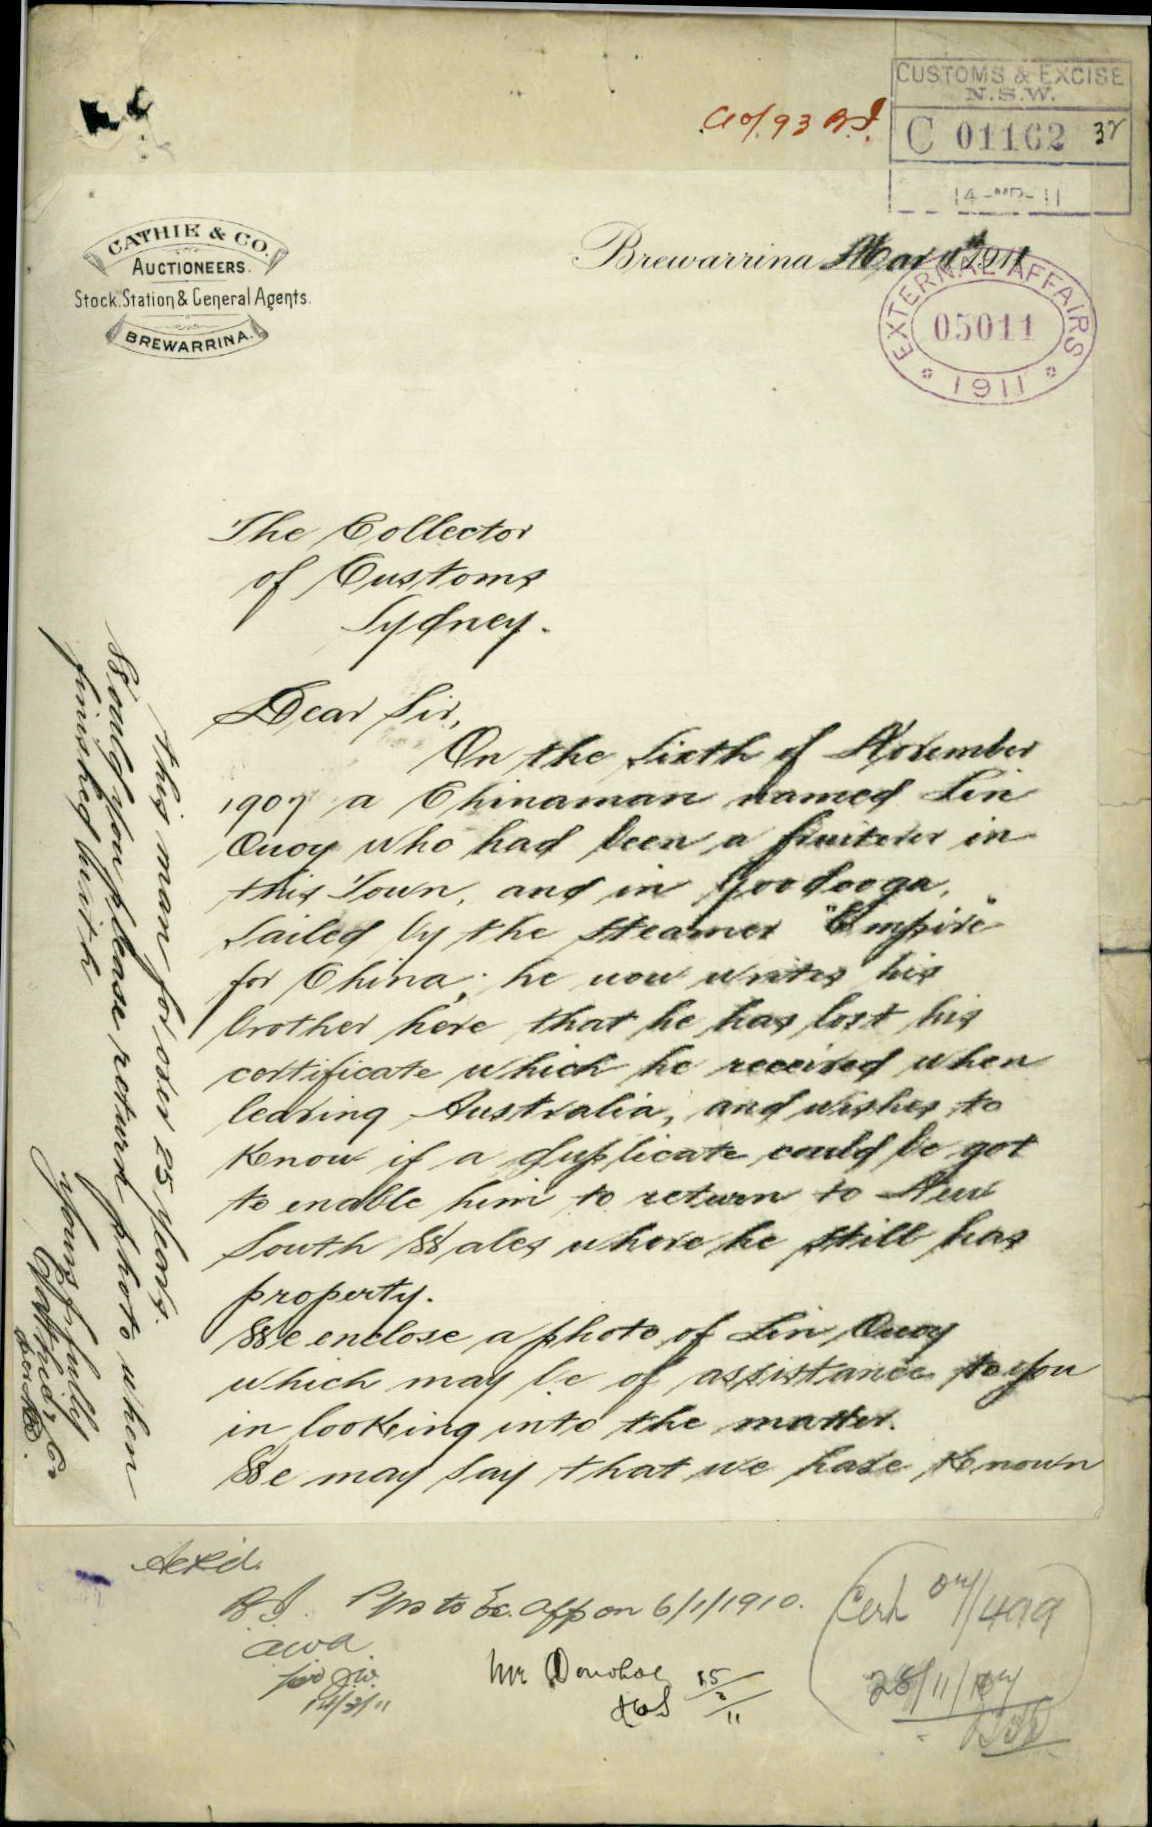 CUSTOMS & EXCISE
N.S.W.
C 01162 32
14-MR-11
CATHIE & CO.
AUCTIONEERS.
Stock, Station & General Agents.
BREWARRINA.
Brewarrina Mar 11th 1911
EXTERNAL AFFAIRS
05011
1911
The Collector
of Customs
Sydney.
Dear Sir,
On the Sixth of November
1907 a Chinaman named Lin
Quoy who had been a fruiterer in
this Town, and in Goodooga,
Sailed by the steamer "Empire"
for China; he now writes his
brother here that he has lost his
certificate which he received when
leaving Australia, and wishes to
Know if a duplicate could be got
to enable him to return to New
South Wales where he still has
property.
We enclose a photo of Lin Quoy
which may be of assistance to you
in looking into the matter.
We may say that we have Known
this man for over 25 years.
Would you please return photo when
finished with
yours faithfully
Cathie & Co
Ack'd.
Pps to Ex. Aff on 6/1/1910.
awa
14/3/11
Mr Donohoe
15/3/11
Cert 07/499
28/11/07